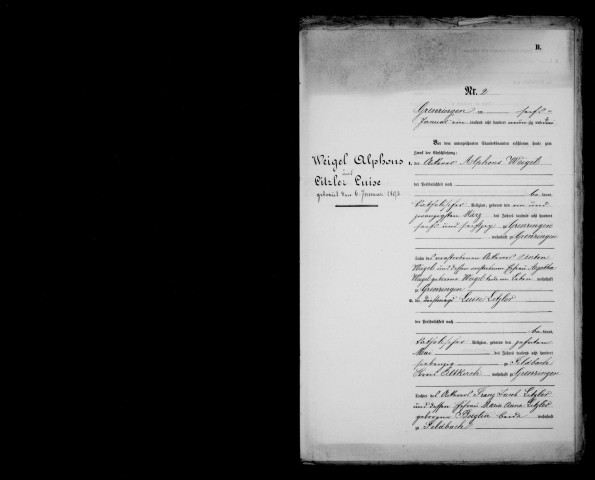 B.
Nr. 2
Grenzingen am sechs-
Januar ein tausend acht hundert neunzig und drei
Vor dem unterzeichneten Standesbeamten erschienen heute zum
Zweck der Eheschließung:
Weigel Alphons
und
Litzler Luise
geheirat den 6. Januar 1893
1. der Ackerer Alphons Weigel
der Persönlichkeit nach
kannt,
katholischer Religion, geboren den ein und
zwanzigsten März des Jahres tausend acht hundert
sechs und sechzig zu Grenzingen
wohnhaft zu Grenzingen
Sohn des verstorbenen Ackerers
Weigel und dessen Ehefrau Agatha
Weigel geborene Weigel wohnhaft
zu Grenzingen
2. die Dienstmagd Luise Litzler
der Persönlichkeit nach
kannt,
katholischer Religion, geboren den zehnten
Mai des Jahres tausend acht hundert
siebenzig zu Feldbach
Kreis Altkirch wohnhaft zu Grenzingen
Tochter des Ackerers Franz Jacob Litzler
und dessen Ehefrau Maria Anna Litzler
geborene beide wohnhaft
zu Feldbach